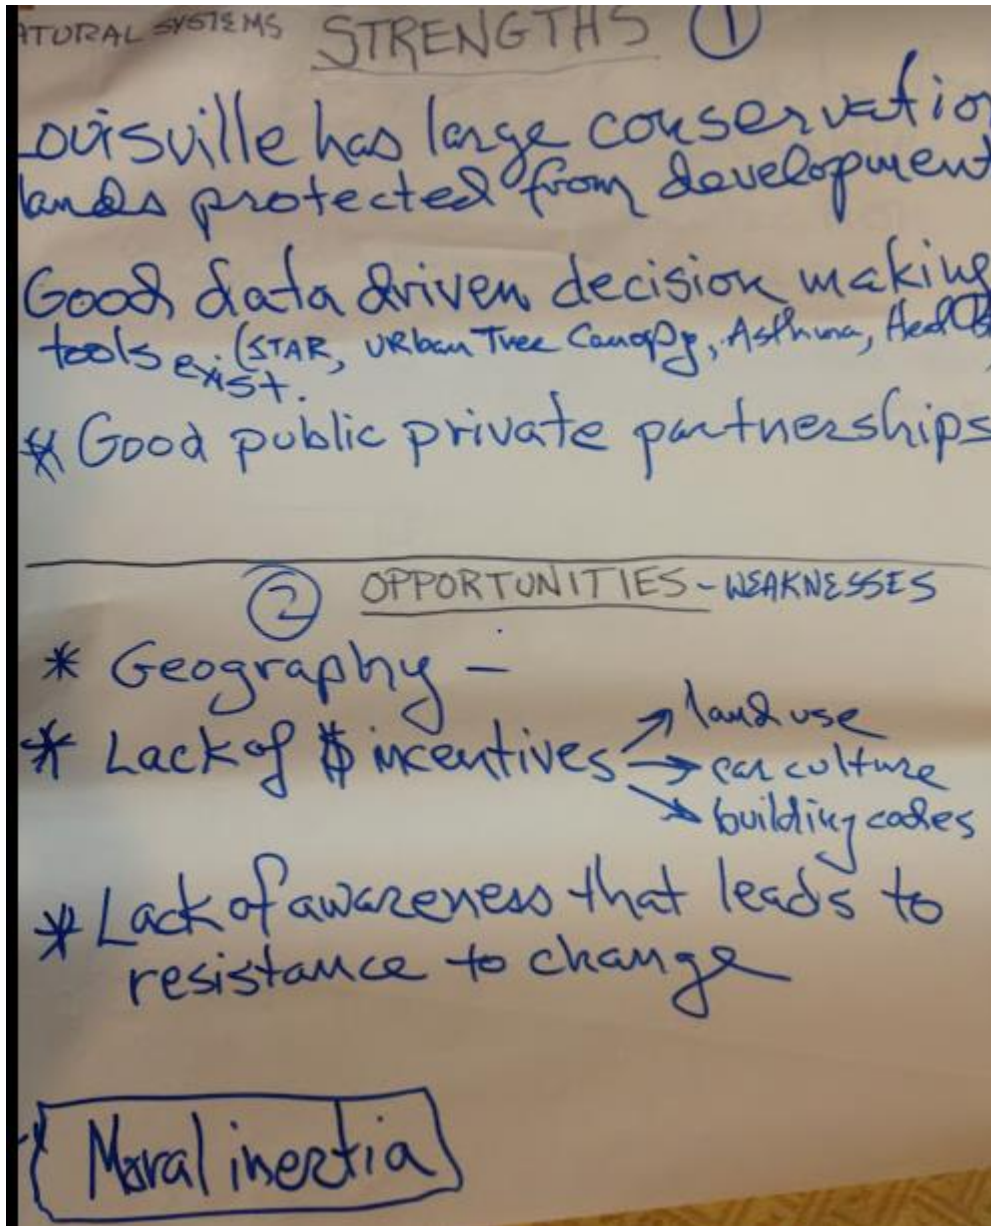 ATURAL SYSTEMS STRENGTHS ①
Louisville has large conservation
lands protected from development
Good data driven decision making
tools exist. (STAR, URban Tree Canopy, Asthma,
* Good public private partnerships
② OPPORTUNITIES - WEAKNESSES
* Geography -
* Lack of $ incentives → land use
→ car culture
→ building codes
* Lack of awareness that leads to
resistance to change
Moral inertia